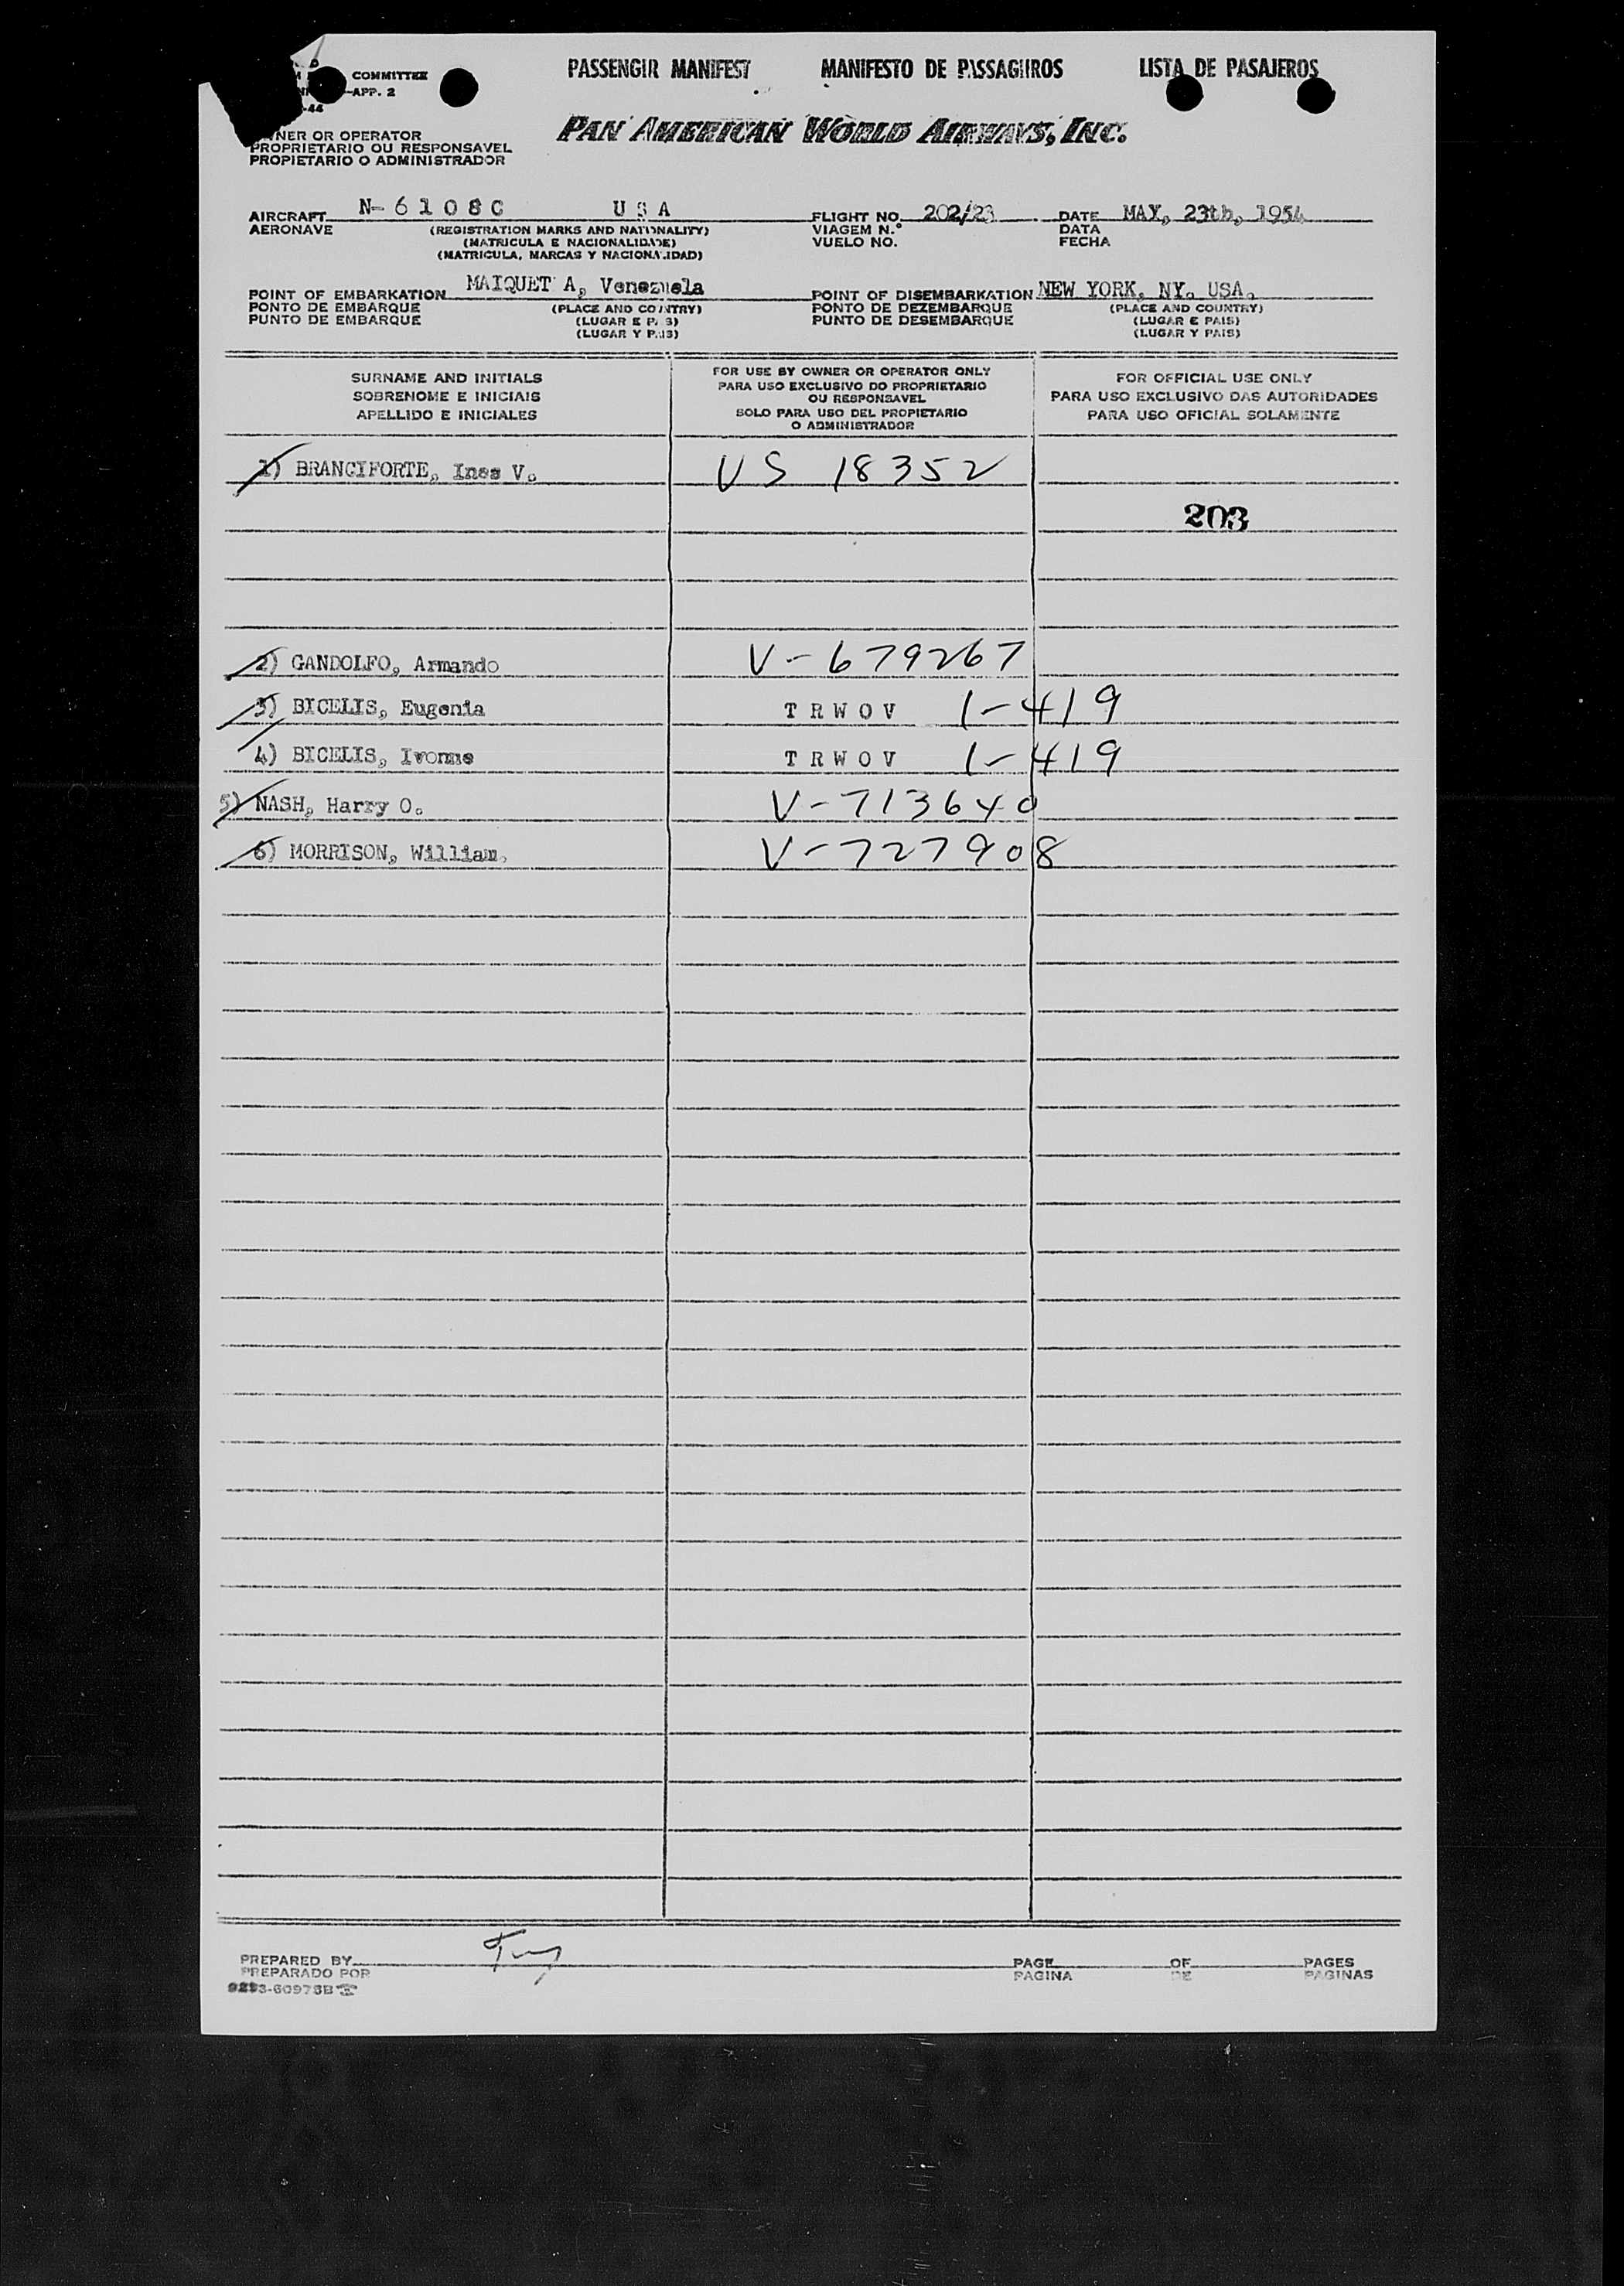 PASSENGER MANIFEST MANIFESTO DE PASSAGEIROS LISTA DE PASAJEROS
COMMITTEE
APP. 2
-44
OWNER OR OPERATOR
PROPRIETARIO OU RESPONSAVEL
PROPIETARIO O ADMINISTRADOR
PAN AMERICAN WORLD AIRWAYS, INC.
AIRCRAFT N-6108C USA FLIGHT NO. 202/23 DATE MAY, 23th, 1954
AERONAVE (REGISTRATION MARKS AND NATIONALITY) VIAGEM N.° DATA
(MATRICULA E NACIONALIDADE) VUELO NO. FECHA
(MATRICULA, MARCAS Y NACIONALIDAD)
POINT OF EMBARKATION MAIQUET A, Venezuela POINT OF DISEMBARKATION NEW YORK, NY. USA.
PONTO DE EMBARQUE (PLACE AND COUNTRY) PONTO DE DEZEMBARQUE (PLACE AND COUNTRY)
PUNTO DE EMBARQUE (LUGAR E PAIS) PUNTO DE DESEMBARQUE (LUGAR E PAIS)
(LUGAR Y PAIS) (LUGAR Y PAIS)
SURNAME AND INITIALS
SOBRENOME E INICIAIS
APELLIDO E INICIALES
FOR USE BY OWNER OR OPERATOR ONLY
PARA USO EXCLUSIVO DO PROPRIETARIO
OU RESPONSAVEL
SOLO PARA USO DEL PROPIETARIO
O ADMINISTRADOR
FOR OFFICIAL USE ONLY
PARA USO EXCLUSIVO DAS AUTORIDADES
PARA USO OFICIAL SOLAMENTE
1) BRANCIFORTE, Ines V. US 18352
203
2) GANDOLFO, Armando V-679267
3) BICELIS, Eugenia TRWOV 1-419
4) BICELIS, Ivonne TRWOV 1-419
5) NASH, Harry O. V-713640
6) MORRISON, William. V-727908
PREPARED BY PAGE OF PAGES
PREPARADO POR PAGINA DE PAGINAS